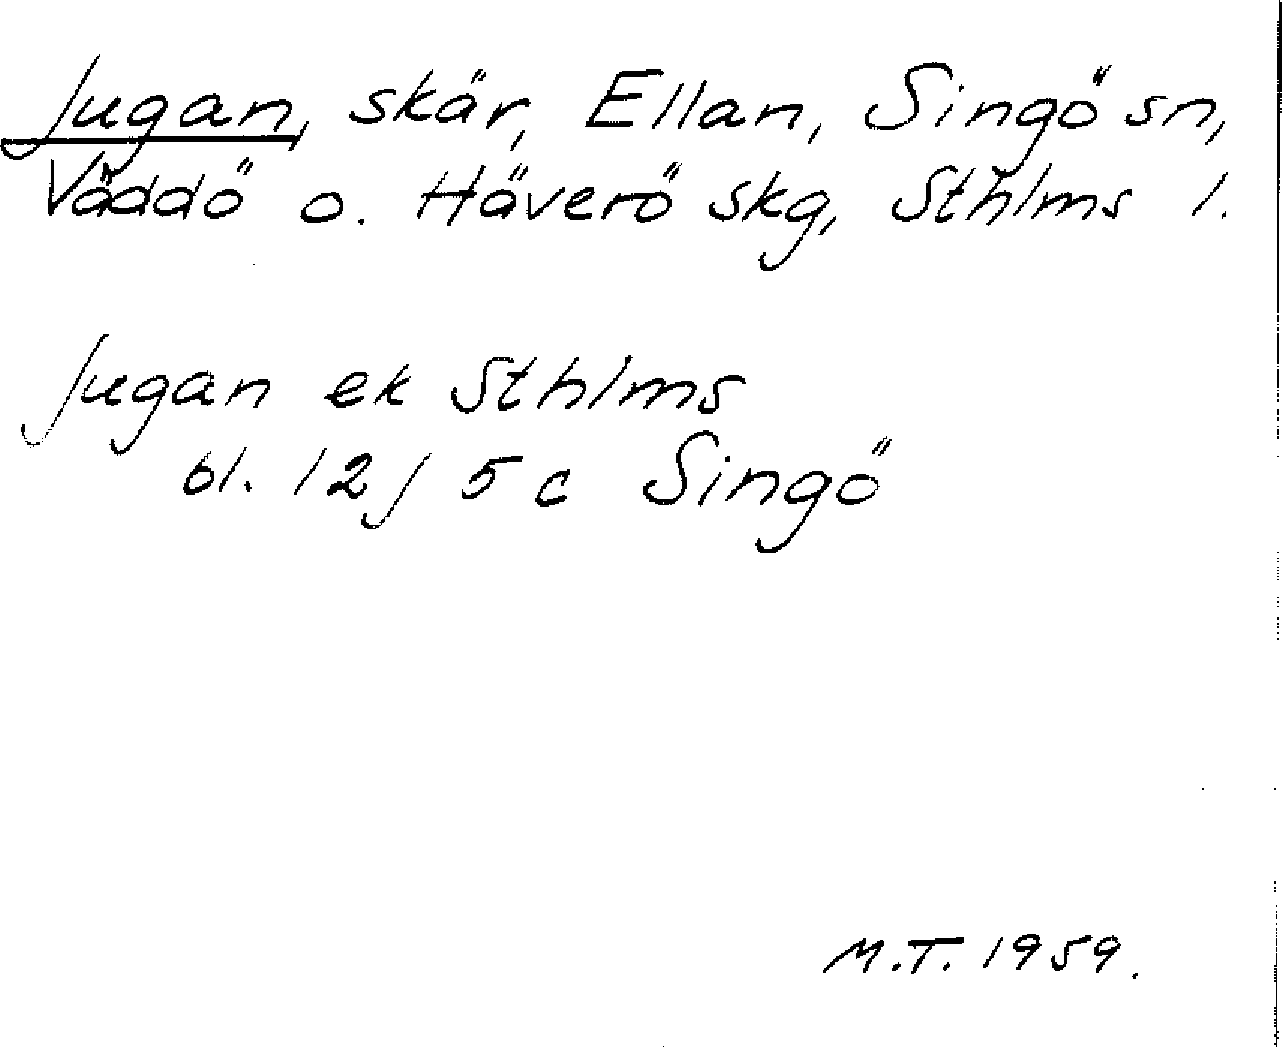 Jugan, skär, Ellan, Singö sn,
Väddö o. Häverö skg, Sthlms l.
Jugan ek Sthlms
bl. 12j 5c Singö
M.T. 1959.